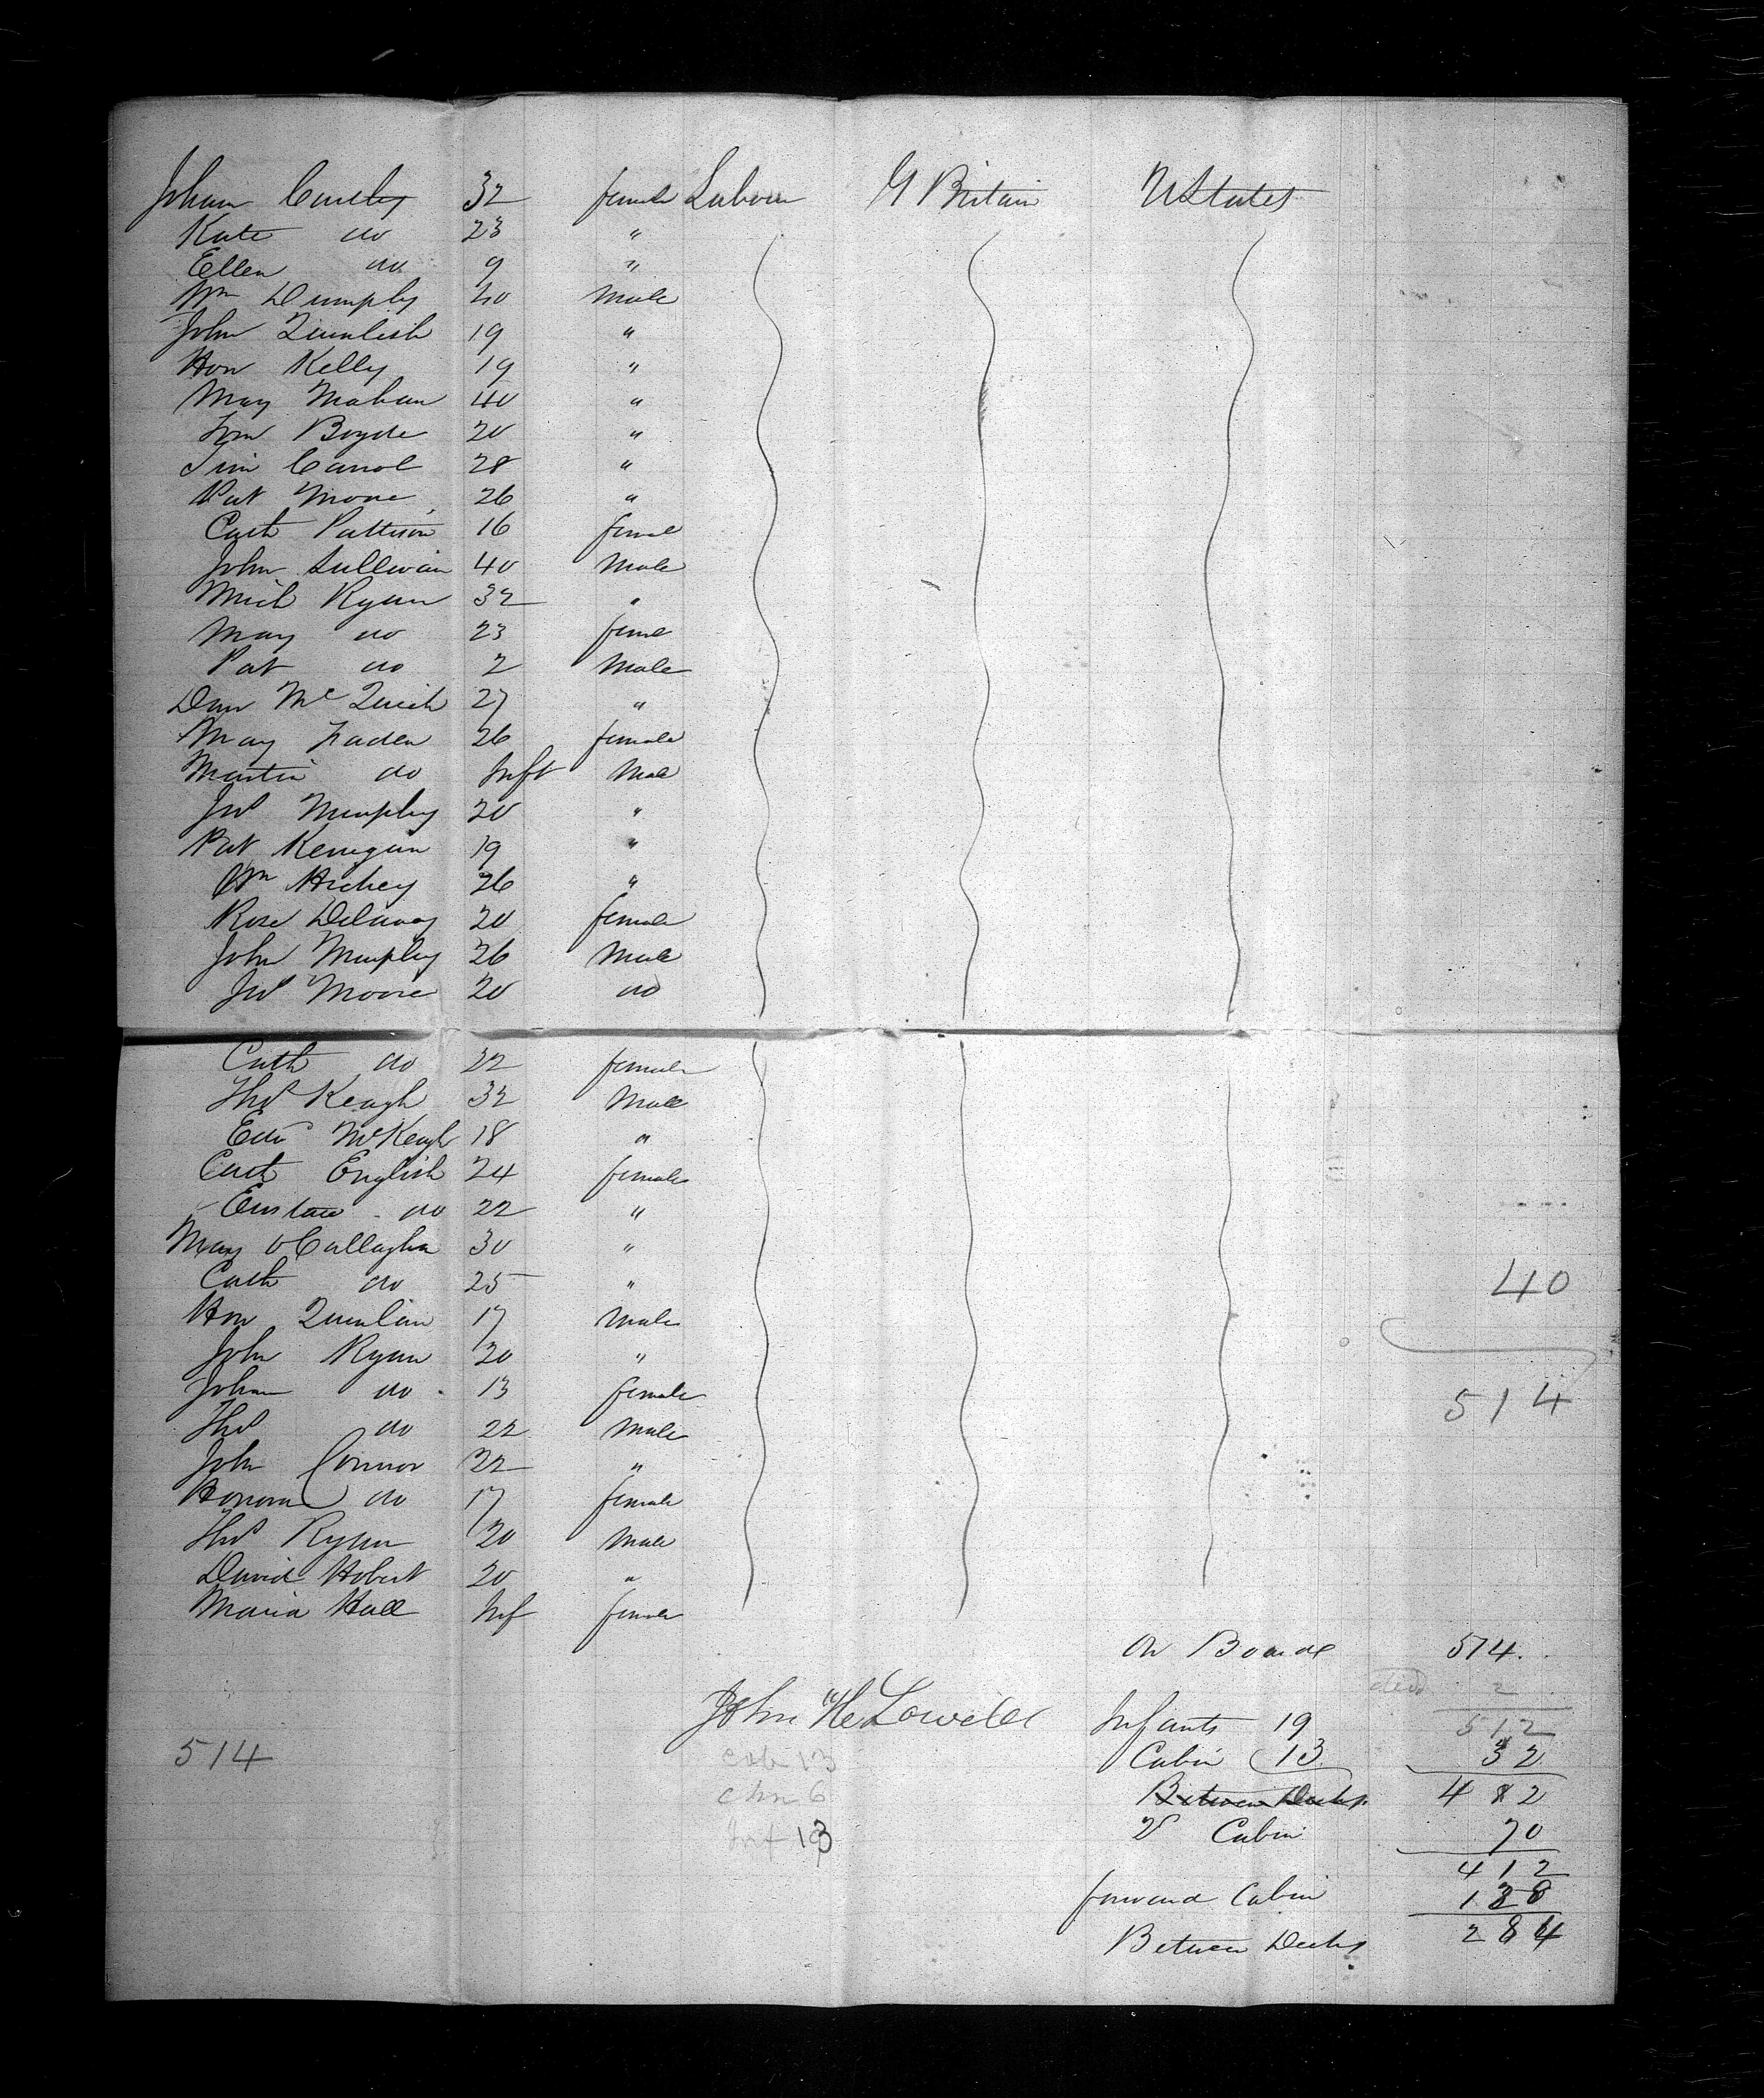 Johan Curley 32 female Labour G Britain U States
Kate do 23 "
Ellen do 9 "
Wm Dumphy 40 Male
John Quinlish 19 "
Hon Kelly 19 "
May Mahan 40 "
Tom Boyde 20 "
Tim Carrol 28 "
Pat Moore 26 "
Cath Pattison 16 femal
John Sullivan 40 Male
Mich Ryan 32 "
May do 23 feml
Pat do 2 Male
Dan McQuich 27 "
May Faden 26 female
Martin do Inft Male
Jno Murphy 20 "
Pat Kerrigan 19 "
Wm Hickey 26 "
Rose Delaney 20 female
John Murphy 26 Male
Jno Moore 20 do
Cath do 22 female
Thos Keagh 32 Male
Edw McKeagh 18 "
Cath English 24 female
do 22 "
May OCallaghan 30 "
Cath do 25 "
40
Hon Quinlan 17 Male
John Ryan 20 "
Johan do 13 female
514
Thos do 22 Male
John Connor 22 "
Honora do 17 female
Thos Ryan 20 Male
David Hobert 20 "
Maria Hall Inf female
On Board 514.
died 2
John McLowell Infants 19 512
514 cab 13 Cabin 13 32
chn 6 Between Decks 482
Inf 13 2d Cabin 70
412
forward Cabin 128
Between Decks 284